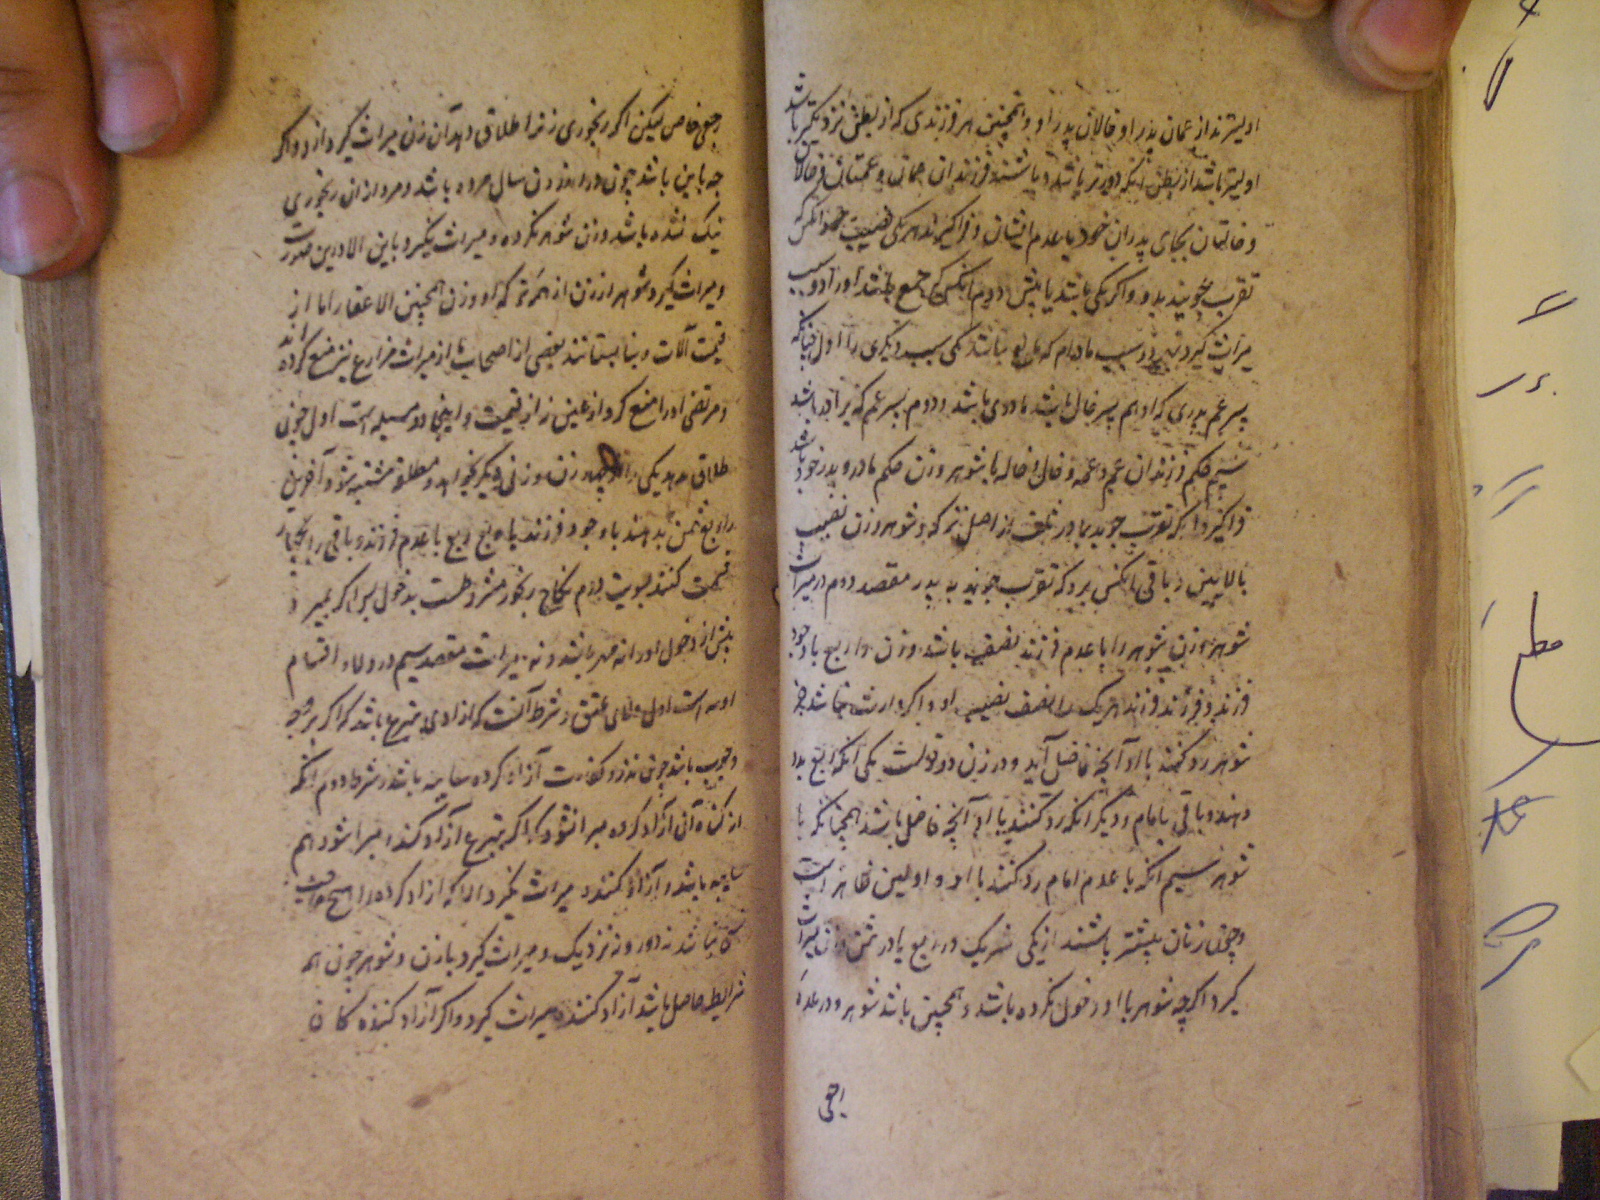 اولیترند از عمان پدر او و خالان پدر او و همچنین هر فرزندی که از بطنی نزدیکتر باشد
اولیتر باشد از بطنی آنکه دورتر باشد و باشند فرزندان عمان و عمتان و خالان
و خالتان بجای پدران خود با عدم ایشان و فراگیرند هر یکی نصیب
تقرب جویند بدو و اگر یکی باشد یا بیش و چون کسی که جمع باشد او را دو سبب
میراث گیرد بهر دو سبب مادام که مانع نباشد یکی سبب دیگری را اول چنانکه
پسر عم پدری که او هم پسر خال باشد مادری باشد و دوم پسر عم که برادر باشد
سیم حکم فرزندان عم و عمه و خال و خاله با شوهر و زن حکم مادر و پدر خود باشد
فراگیرد آنکه تقرب جوید بمادر ثلث از اصل ترکه و شوهر و زن نصیب
بالایین و باقی آنکس برد که تقرب جوید به پدر مقصد دوم در میراث
شوهر و زن شوهر را با عدم فرزند نصف باشد و زن را ربع با وجود
فرزند و فرزند فرزند هر یک را نصف نصیب او و اگر وارث نباشد جز
شوهر رد کنند باو آنچه فاضل آید و در زن دو قولست یکی آنکه ربع بدو
دهند و باقی بامام و دیگر آنکه رد کنند باو آنچه فاضل باشد همچنانکه با
شوهر سیم آنکه با عدم امام رد کنند با او و اولین ظاهر است
و چون زنان بیشتر باشند از یکی شریک در ربع یا در ثمن و زن میراث
گیرد اگرچه شوهر با او دخول نکرده باشد و همچنین باشد شوهر و در عده
رجعی
رجعی خاص لیکن اگر رنجوری زنرا طلاق دهد آن زن میراث گیرد از او اگر
چه باین باشد چون در اندرون سال مرده باشد و مرد از آن رنجوری
نیک نشده باشد و زن شوهر نکرده و میراث نگیرد باین الا درین صورت
و میراث گیرد شوهر از زن از هر ترکه او و زن همچنین الا عقار اما از
قیمت آلات و بنا بستانند بعضی از اصحاب از میراث مزارع نیز منع کرده اند
و مرتضی او را منع کرد از عین نه از قیمت و اینجا دو مسیله است اول چون
طلاق دهد یکی را از چهار زن و زنی دیگر بخواهد و مطلقه مشتبه شود آخرین
را ربع ثمن بدهند با وجود فرزند یا ربع ربع با عدم فرزند و باقی را بچهار
قسمت کنند بسویت دوم نکاح رنجور مشروطست بدخول پس اگر بمیرد
پیش از دخول او را نه مهر باشد و نه میراث مقصد سیم در ولاء و اقسام
او سه است اول ولای عتق و شرط آنست که آزادی بتبرع باشد که اگر بر وجه
وجوب باشد چون نذر و کفارت آزاد کرده سایبه باشد و شرط دوم آنکه
از گناه آن آزاد کرده مبرا نشود که اگر بتبرع آزاد کند و مبرا شود هم
سایبه باشد و آزاد کننده میراث نگیرد الا که آزاد کرده را هیچ وارث
باشد نه دور و نه نزدیک و میراث گیرد با زن و شوهر چون
شرایط حاصل باشد آزاد کننده میراث گیرد و اگر آزاد کننده کان